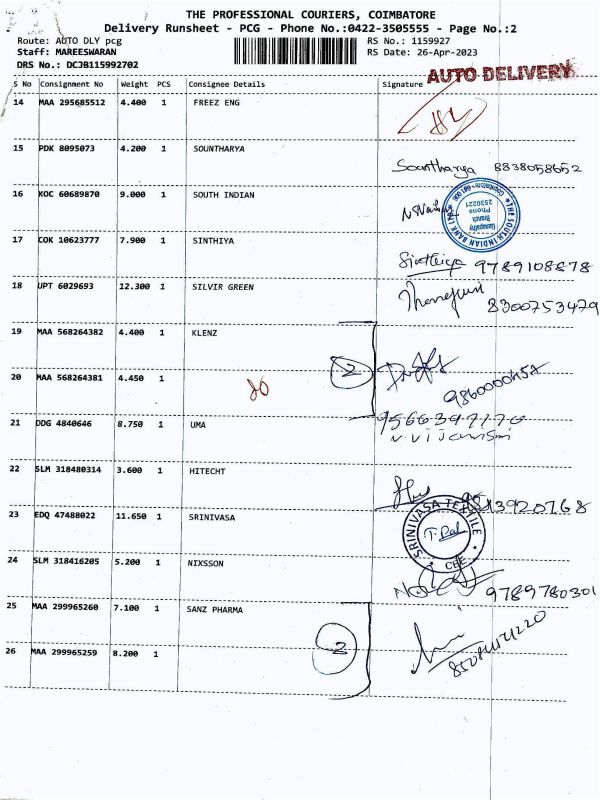 THE PROFESSIONAL COURIERS, COIMBATORE
Delivery Runsheet - PCG - Phone No.:0422-3505555 - Page No.:2
Route: AUTO DLY pcg
Staff: MAREESWARAN
DRS No.: DCJB115992702
RS No.: 1159927
RS Date: 26-Apr-2023
AUTO DELIVERY
S No Consignment No Weight PCS Consignee Details Signature
14 MAA 295685512 4.400 1 FREEZ ENG
15 PDK 8095073 4.200 1 SOUNTHARYA
Sountharya 8838058652
16 KOC 60689870 9.000 1 SOUTH INDIAN
THE SOUTH INDIAN BANK LTD
Ganapathy
Branch
Phone
2530221
17 COK 10623777 7.900 1 SINTHIYA
Sinthiya 9789108878
18 UPT 6029693 12.300 1 SILVIR GREEN
8300753479
19 MAA 568264382 4.400 1 KLENZ
2
20 MAA 568264381 4.450 1
20
21 DDG 4840646 8.750 1 UMA
9566397170
22 SLM 318480314 3.600 1 HITECHT
23 EDQ 47488022 11.650 1 SRINIVASA
SRINIVASA TEXTILE
CBE
24 SLM 318416205 5.200 1 NIXSSON
9789780301
25 MAA 299965260 7.100 1 SANZ PHARMA
2
26 MAA 299965259 8.200 1